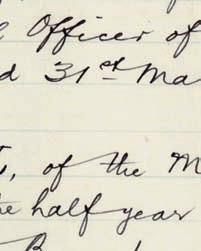 Officer of
31st Ma
of the M
half year